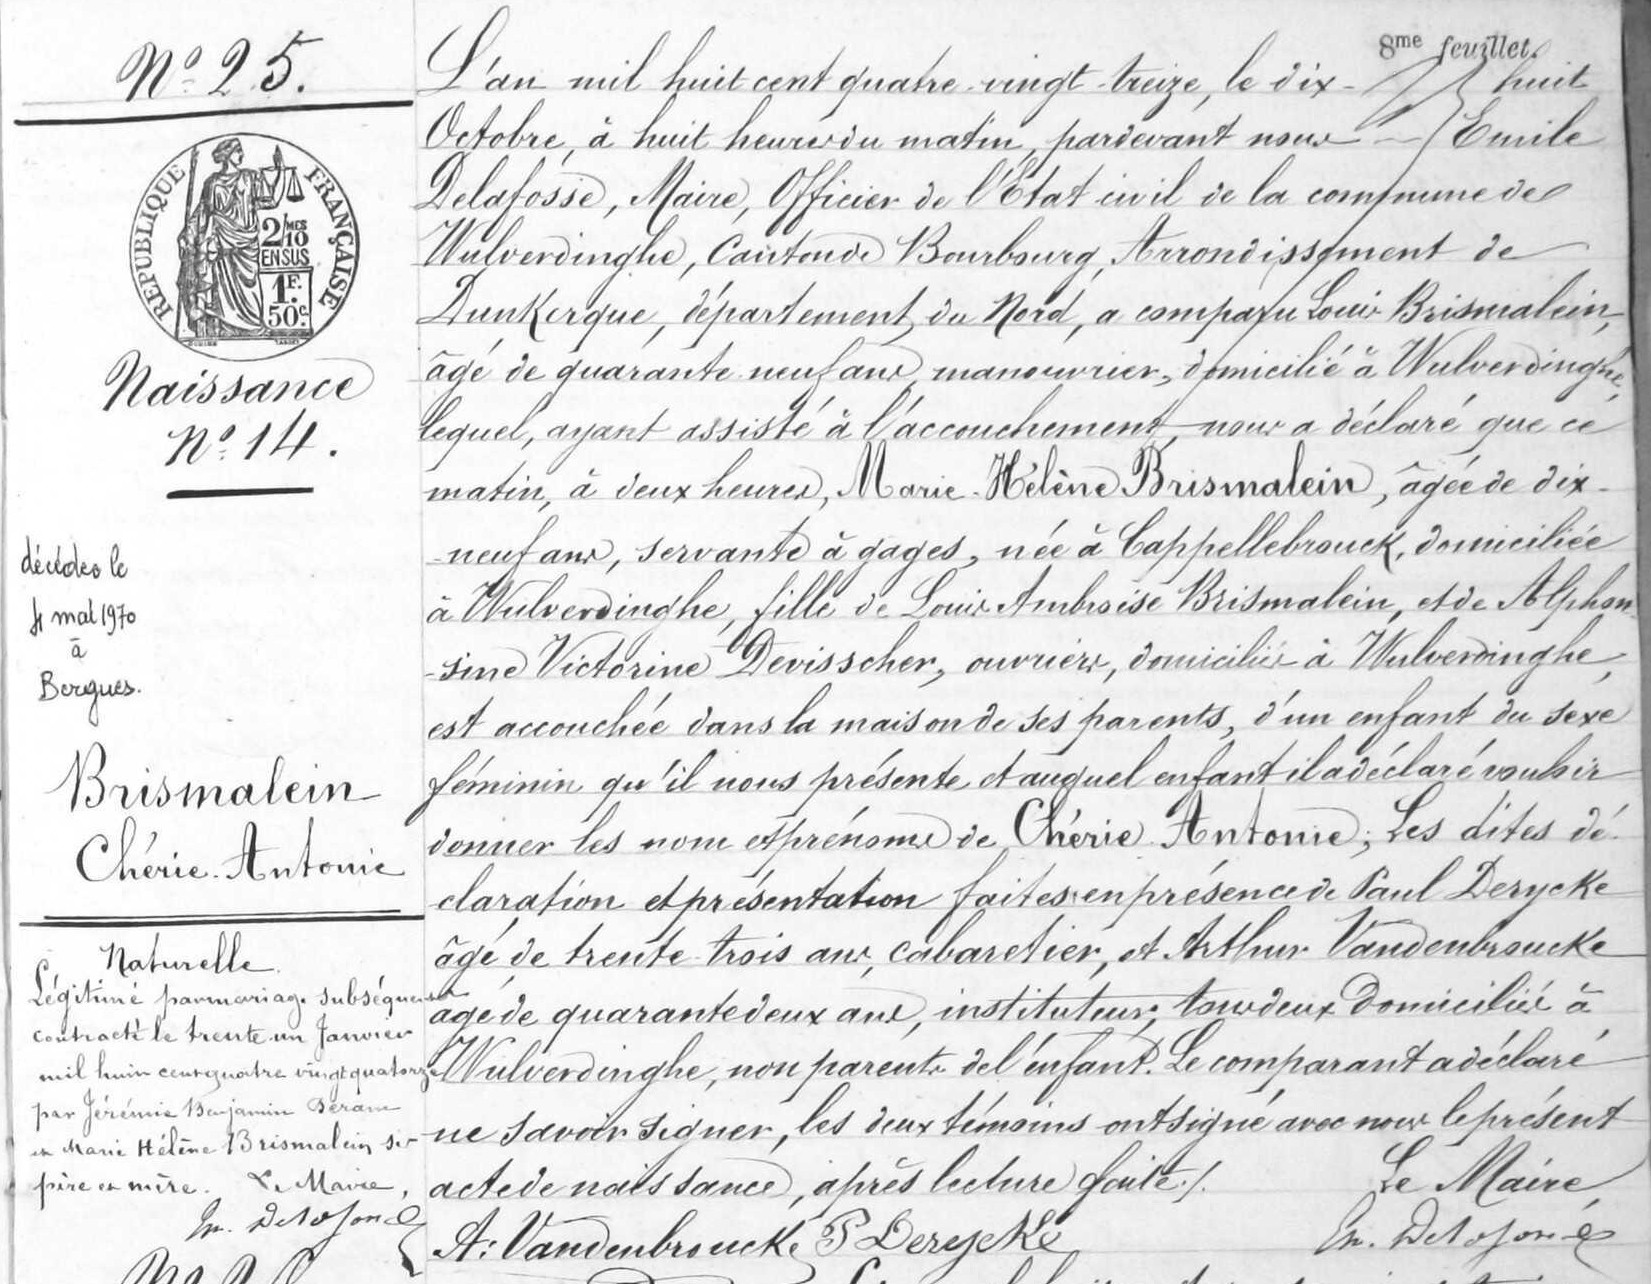 8me feuillet.
No 25.
RÉPUBLIQUE FRANÇAISE
2/10 MES
EN SUS
1F.
50c.
Naissance
No 14.
décédée le
4 mai 1970
à
Bergues.
Brismalein
Chérie-Antonie
Naturelle
Légitimé par mariage subséquent
contracté le trente un Janvier
mil huit cent quatre vingt quatorze
par Jérémie Benjamin
et Marie Hélène Brismalein ses
père et mère. Le Maire,
Em. Delafosse
L'an mil huit cent quatre-vingt-treize, le dix-huit
Octobre, à huit heures du matin, pardevant nous Emile
Delafosse, Maire, Officier de l'Etat civil de la commune de
Wulverdinghe, Canton de Bourbourg, Arrondissement de
Dunkerque, département du Nord, a comparu Louis Brismalein,
âgé de quarante-neuf ans, manouvrier, domicilié à Wulverdinghe,
lequel, ayant assisté à l'accouchement, nous a déclaré que ce
matin, à deux heures, Marie-Hélène Brismalein, âgée de dix-
-neuf ans, servante à gages, née à Cappellebrouck, domiciliée
à Wulverdinghe, fille de Louis Ambroise Brismalein, et de Alphon-
-sine Victorine Devisscher, ouvriers, domiciliés à Wulverdinghe,
est accouchée dans la maison de ses parents, d'un enfant du sexe
féminin qu'il nous présente et auquel enfant il a déclaré vouloir
donner les nom et prénoms de Chérie-Antonie; Les dites dé-
claration et présentation faites en présence de Paul Derycke
âgé de trente-trois ans, cabaretier, et Arthur Vandenbroucke
âgé de quarante deux ans, instituteur, tous deux domiciliés à
Wulverdinghe, non parents de l'enfant. Le comparant a déclaré
ne savoir signer, les deux témoins ont signé avec nous le présent
acte de naissance, après lecture faite./. Le Maire,
A. Vandenbroucke P Derycke Em. Delafosse